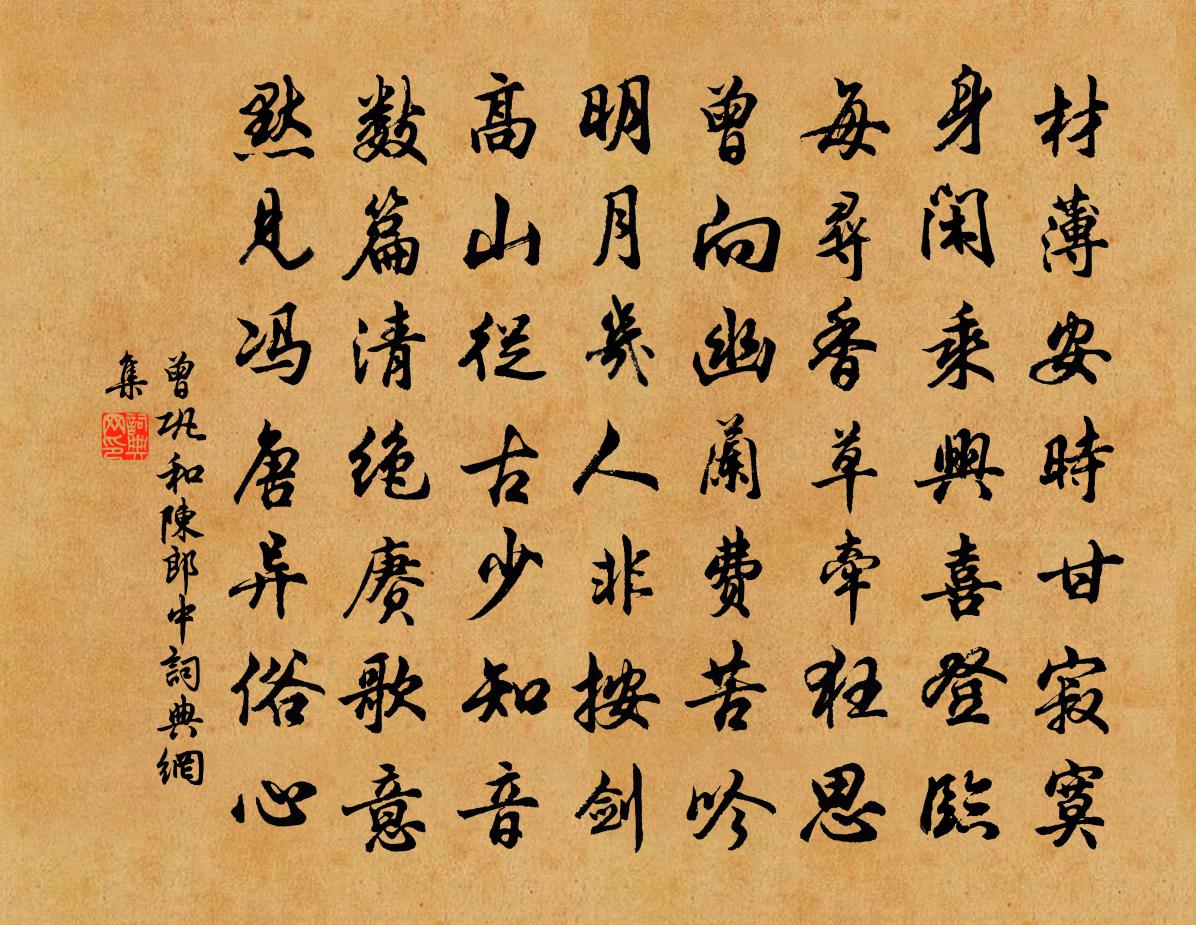 材薄安時甘寂寞
身闲乘興喜登臨
每尋香草牽狂思
曾向幽蘭費苦吟
明月幾人非按劍
高山從古少知音
数篇清绝赓歌意
默見冯唐异俗心
曾巩和陳郎中詞典網
集
詞典
网印